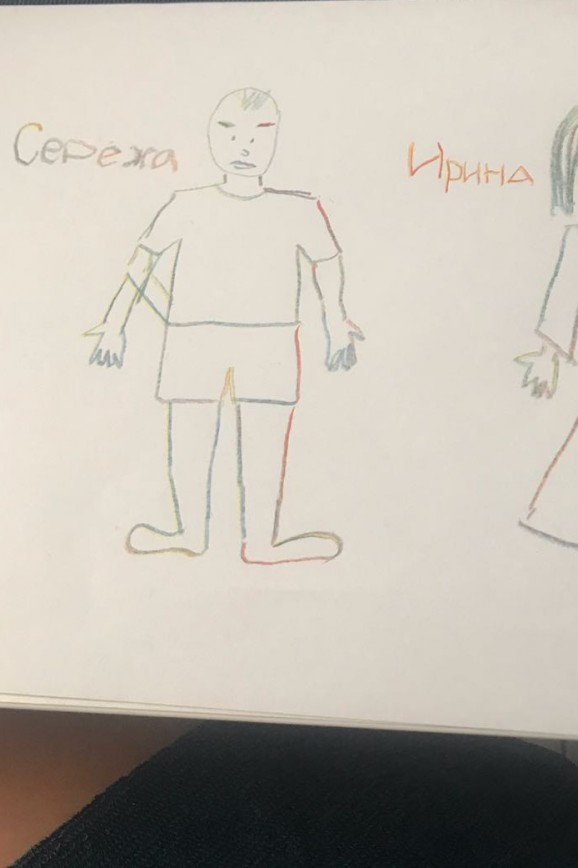 Сережа
Ирина